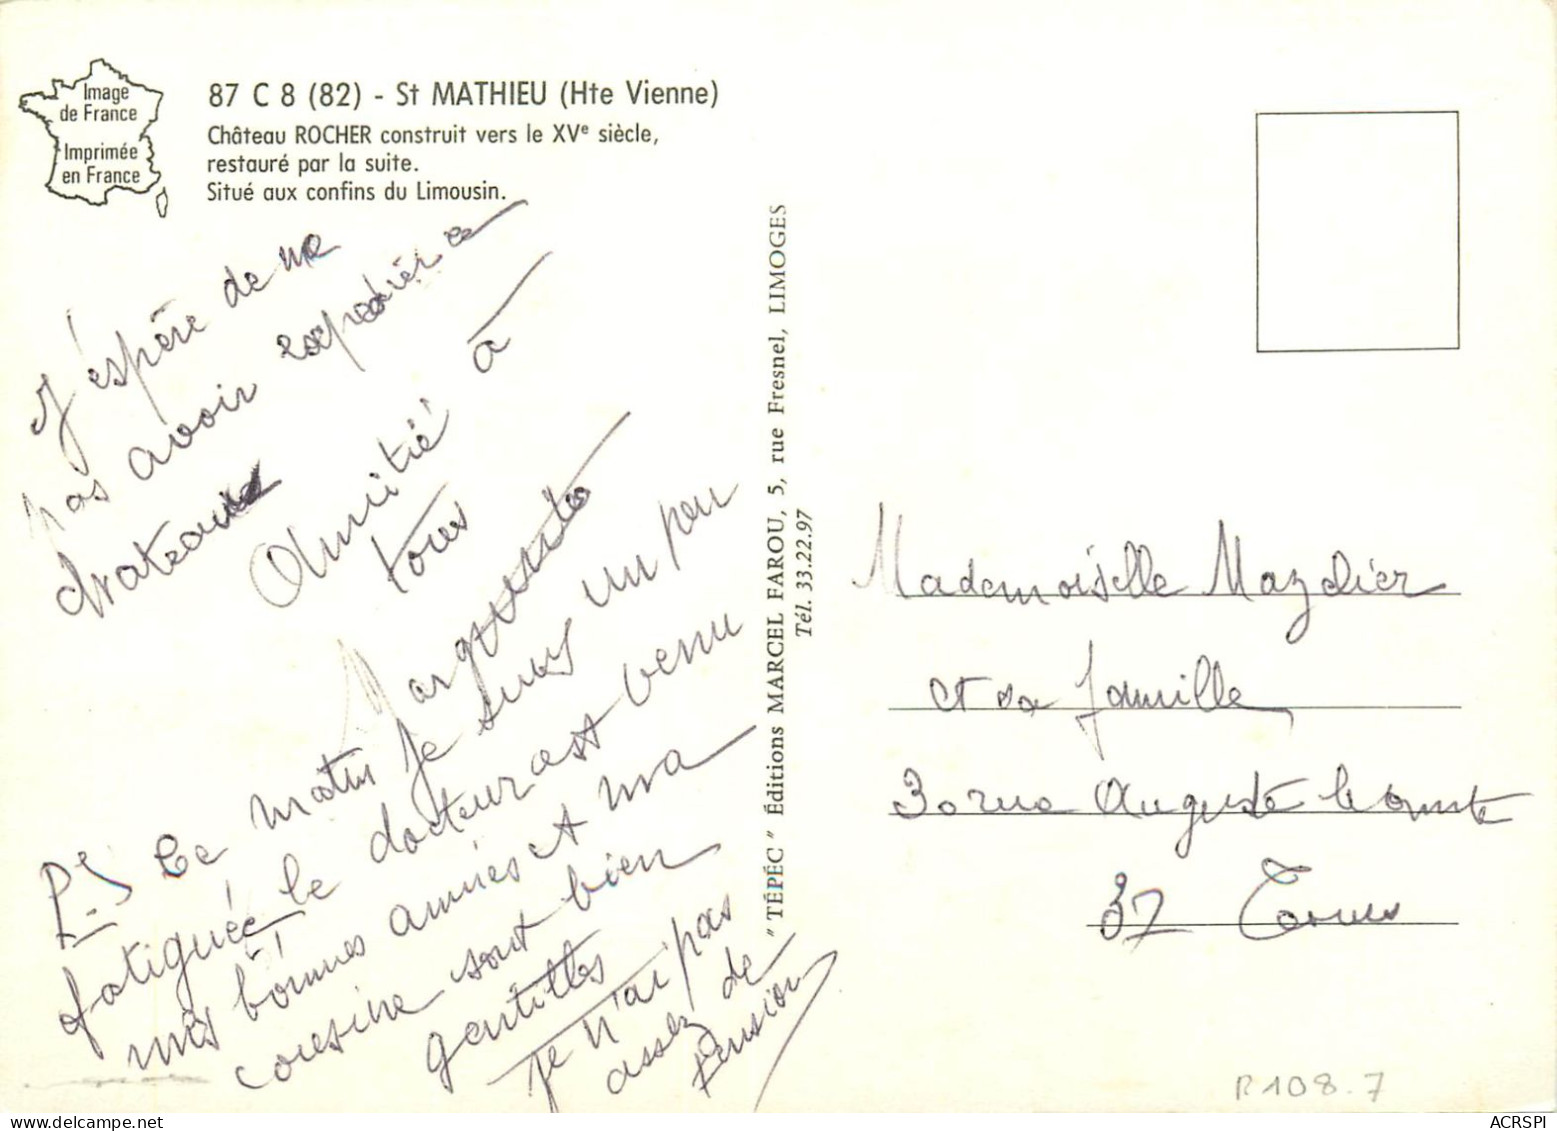 Image
de France
Imprimée
en France
87 C 8 (82) - St MATHIEU (Hte Vienne)
Château ROCHER construit vers le XVe siècle,
restauré par la suite.
Situé aux confins du Limousin.
J'espère de ne
pas avoir expédiér ce
chateau
Amitié à
tous
Marguerite
P.S Ce matin je suis un peu
fatiguée le docteur est venu
mis bonnes amies et ma
cousine sont bien
gentilles
je n'ai pas
assez de
tension
"TÉPÉC" Éditions MARCEL FAROU, 5, rue Fresnel, LIMOGES
Tél. 33.22.97
Mademoiselle Mazelier
et sa famille
30 rue Auguste le comte
37 Tours
R108.7
ACRSPI